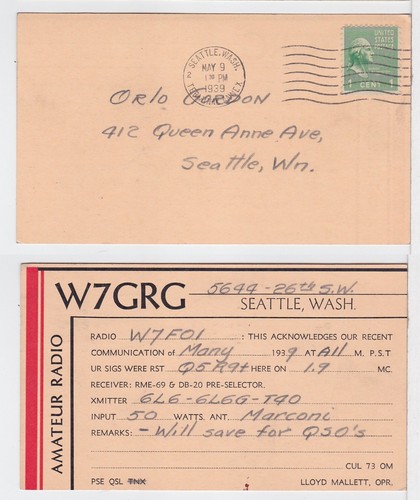 SEATTLE, WASH. 2
MAY 9
1 30 PM
1939
UNITED
STATES
POSTAGE
1 CENT
Orlo Gordon
412 Queen Anne Ave,
Seattle, Wn.
AMATEUR RADIO
W7GRG
5644-26th S.W.
SEATTLE, WASH.
RADIO W7FOI : THIS ACKNOWLEDGES OUR RECENT
COMMUNICATION OF Many 1939 AT All M. P.S.T
UR SIGS WERE RST Q5R9+ HERE ON 1.9 MC.
RECEIVER: RME-69 & DB-20 PRE-SELECTOR.
XMITTER 6L6-6L6G-T40
INPUT 50 WATTS. ANT. Marconi
REMARKS: - Will save for QSO's
CUL 73 OM
PSE QSL TNX LLOYD MALLETT, OPR.